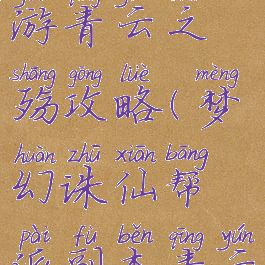 游青云之
shāng gōng lüè mèng
殇攻略(梦
huàn zhū xiān bāng
幻诛仙帮
pài fù běn qīng yún
派副本青云